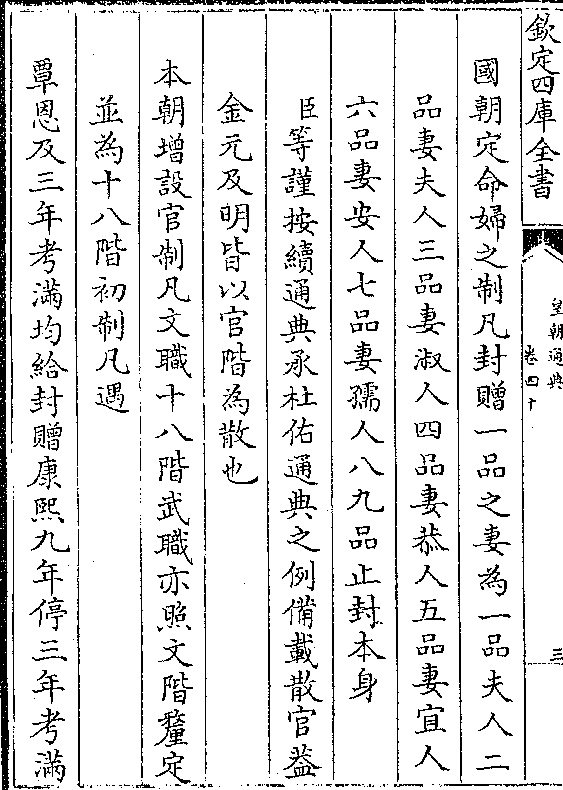 欽定四庫全書
皇朝通典
卷四十
三
國朝定命婦之制凡封贈一品之妻為一品夫人二
品妻夫人三品妻淑人四品妻恭人五品妻宜人
六品妻安人七品妻孺人八九品止封本身
臣等謹按續通典承杜佑通典之例備載散官蓋
金元及明皆以官階為散也
本朝增設官制凡文職十八階武職亦照文階釐定
並為十八階初制凡遇
覃恩及三年考滿均給封贈康熙九年停三年考滿